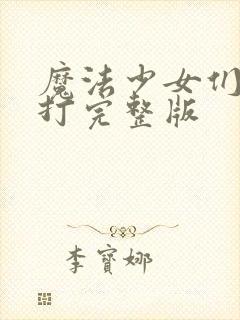 魔法少女们
打完整版
李寳娜